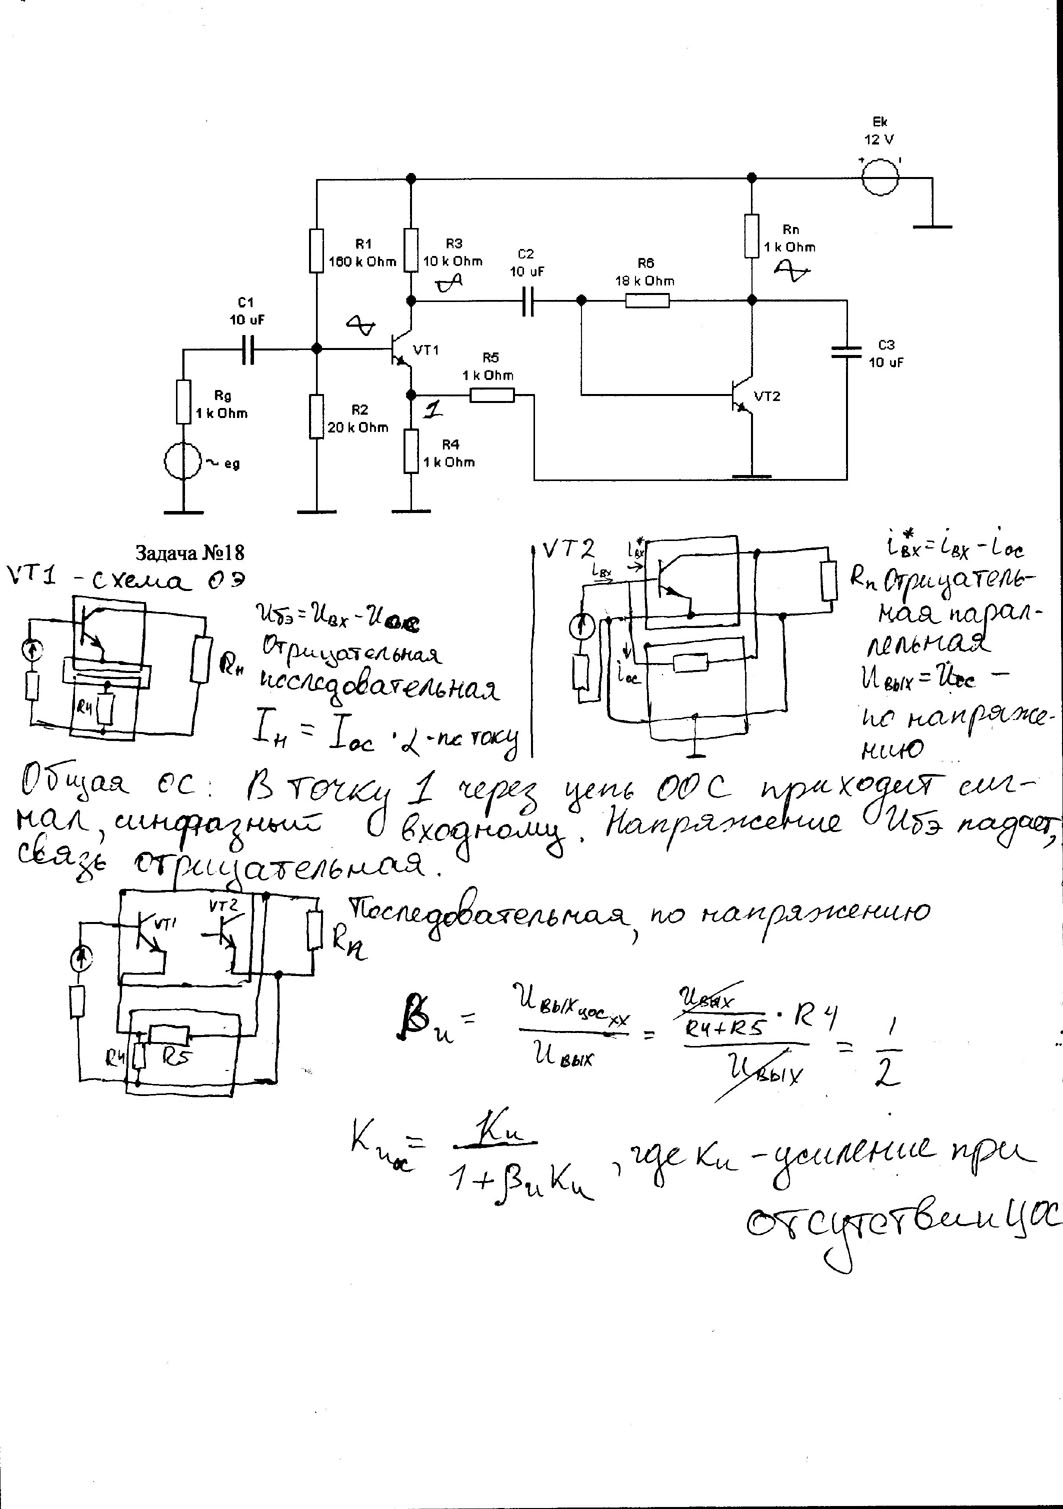 Ek
12 V
R1
160 k Ohm
R3
10 k Ohm
Rn
1 k Ohm
C2
10 uF
R6
18 k Ohm
C1
10 uF
VT1
R5
1 k Ohm
C3
10 uF
Rg
1 k Ohm
R2
20 k Ohm
1
VT2
~ eg
R4
1 k Ohm
Задача №18
VT1 - схема ОЭ
Uбэ = Uвх - Uос
Отрицательная
последовательная
Iн = Iос · α - по току
R4
Rн
VT2
iвх
iвх*
iос
Rn
iвх* = iвх - iос
Отрицатель-
ная парал-
лельная
Uвых = Uос -
по напряже-
нию
Общая ОС: В точку 1 через цепь ООС приходит сиг-
нал, синфазный входному. Напряжение Uбэ падает,
связь отрицательная.
VT1
VT2
Rn
R4
R5
Последовательная, по напряжению
βu = Uвых цос хх / Uвых = (Uвых / (R4+R5) · R4) / Uвых = 1/2
Kuос = Ku / (1 + βu Ku), где Ku - усиление при
отсутствии ЦОС